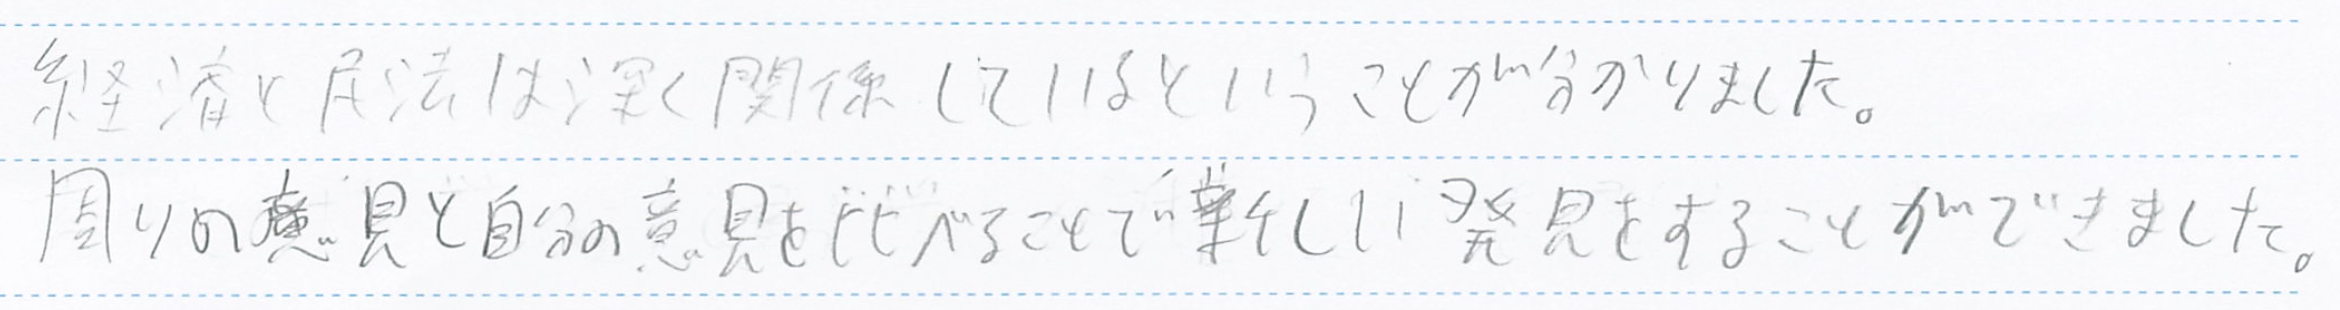 経済と民法は深く関係しているということが分かりました。
周りの意見と自分の意見を比べることで新しい発見をすることができました。